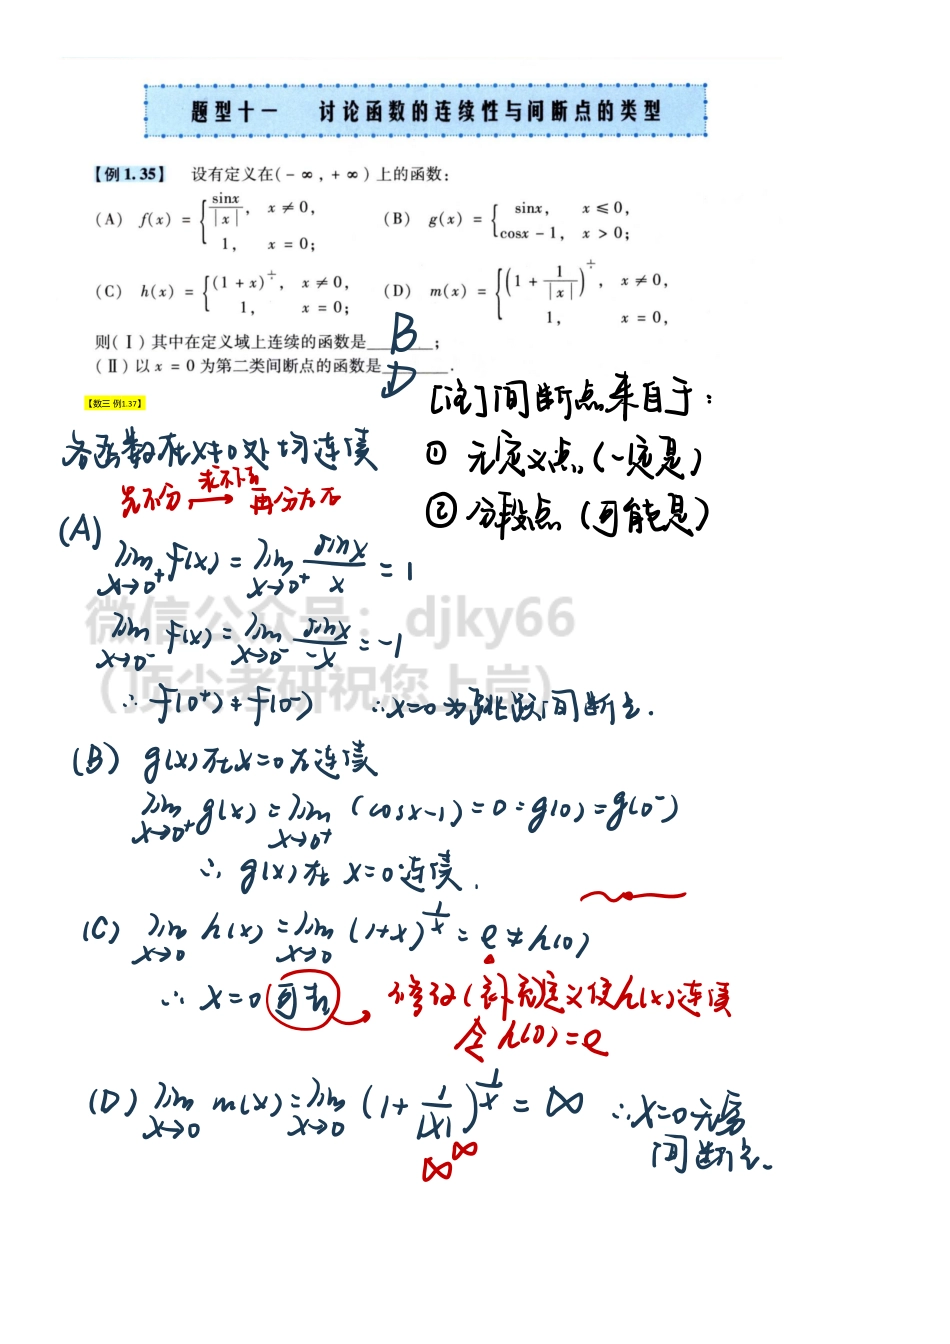 题型十一 讨论函数的连续性与间断点的类型
【例1.35】 设有定义在(-∞,+∞)上的函数:
(A) f(x) = { sinx/|x|, x≠0, 1, x=0;
(B) g(x) = { sinx, x≤0, cosx-1, x>0;
(C) h(x) = { (1+x)^{1/x}, x≠0, 1, x=0;
(D) m(x) = { (1+1/|x|)^{1/x}, x≠0, 1, x=0,
则(Ⅰ)其中在定义域上连续的函数是 B ;
(Ⅱ)以x=0为第二类间断点的函数是 D .
【数三 例1.37】
[注]间断点来自于:
① 无定义点(一定是)
② 分段点(可能是)
各函数在x≠0处均连续
先不分 求不下去→ 再分左右
(A) lim_{x→0⁺} f(x) = lim_{x→0⁺} sinx/x = 1
微信公众号:djky66
lim_{x→0⁻} f(x) = lim_{x→0⁻} sinx/-x = -1
(顶尖考研祝您上岸)
∴ f(0⁺)≠f(0⁻) ∴x=0为跳跃间断点.
(B) g(x)在x=0左连续
lim_{x→0⁺} g(x) = lim_{x→0⁺} (cosx-1) = 0 = g(0) = g(0⁻)
∴ g(x)在 x=0连续.
(C) lim_{x→0} h(x) = lim_{x→0} (1+x)^{1/x} = e ≠ h(0)
∴ x=0可去 → 修改(补充)定义使h(x)连续
令 h(0)=e
(D) lim_{x→0} m(x) = lim_{x→0} (1+1/|x|)^{1/x} = ∞ ∴x=0无穷
∞^∞
间断点.